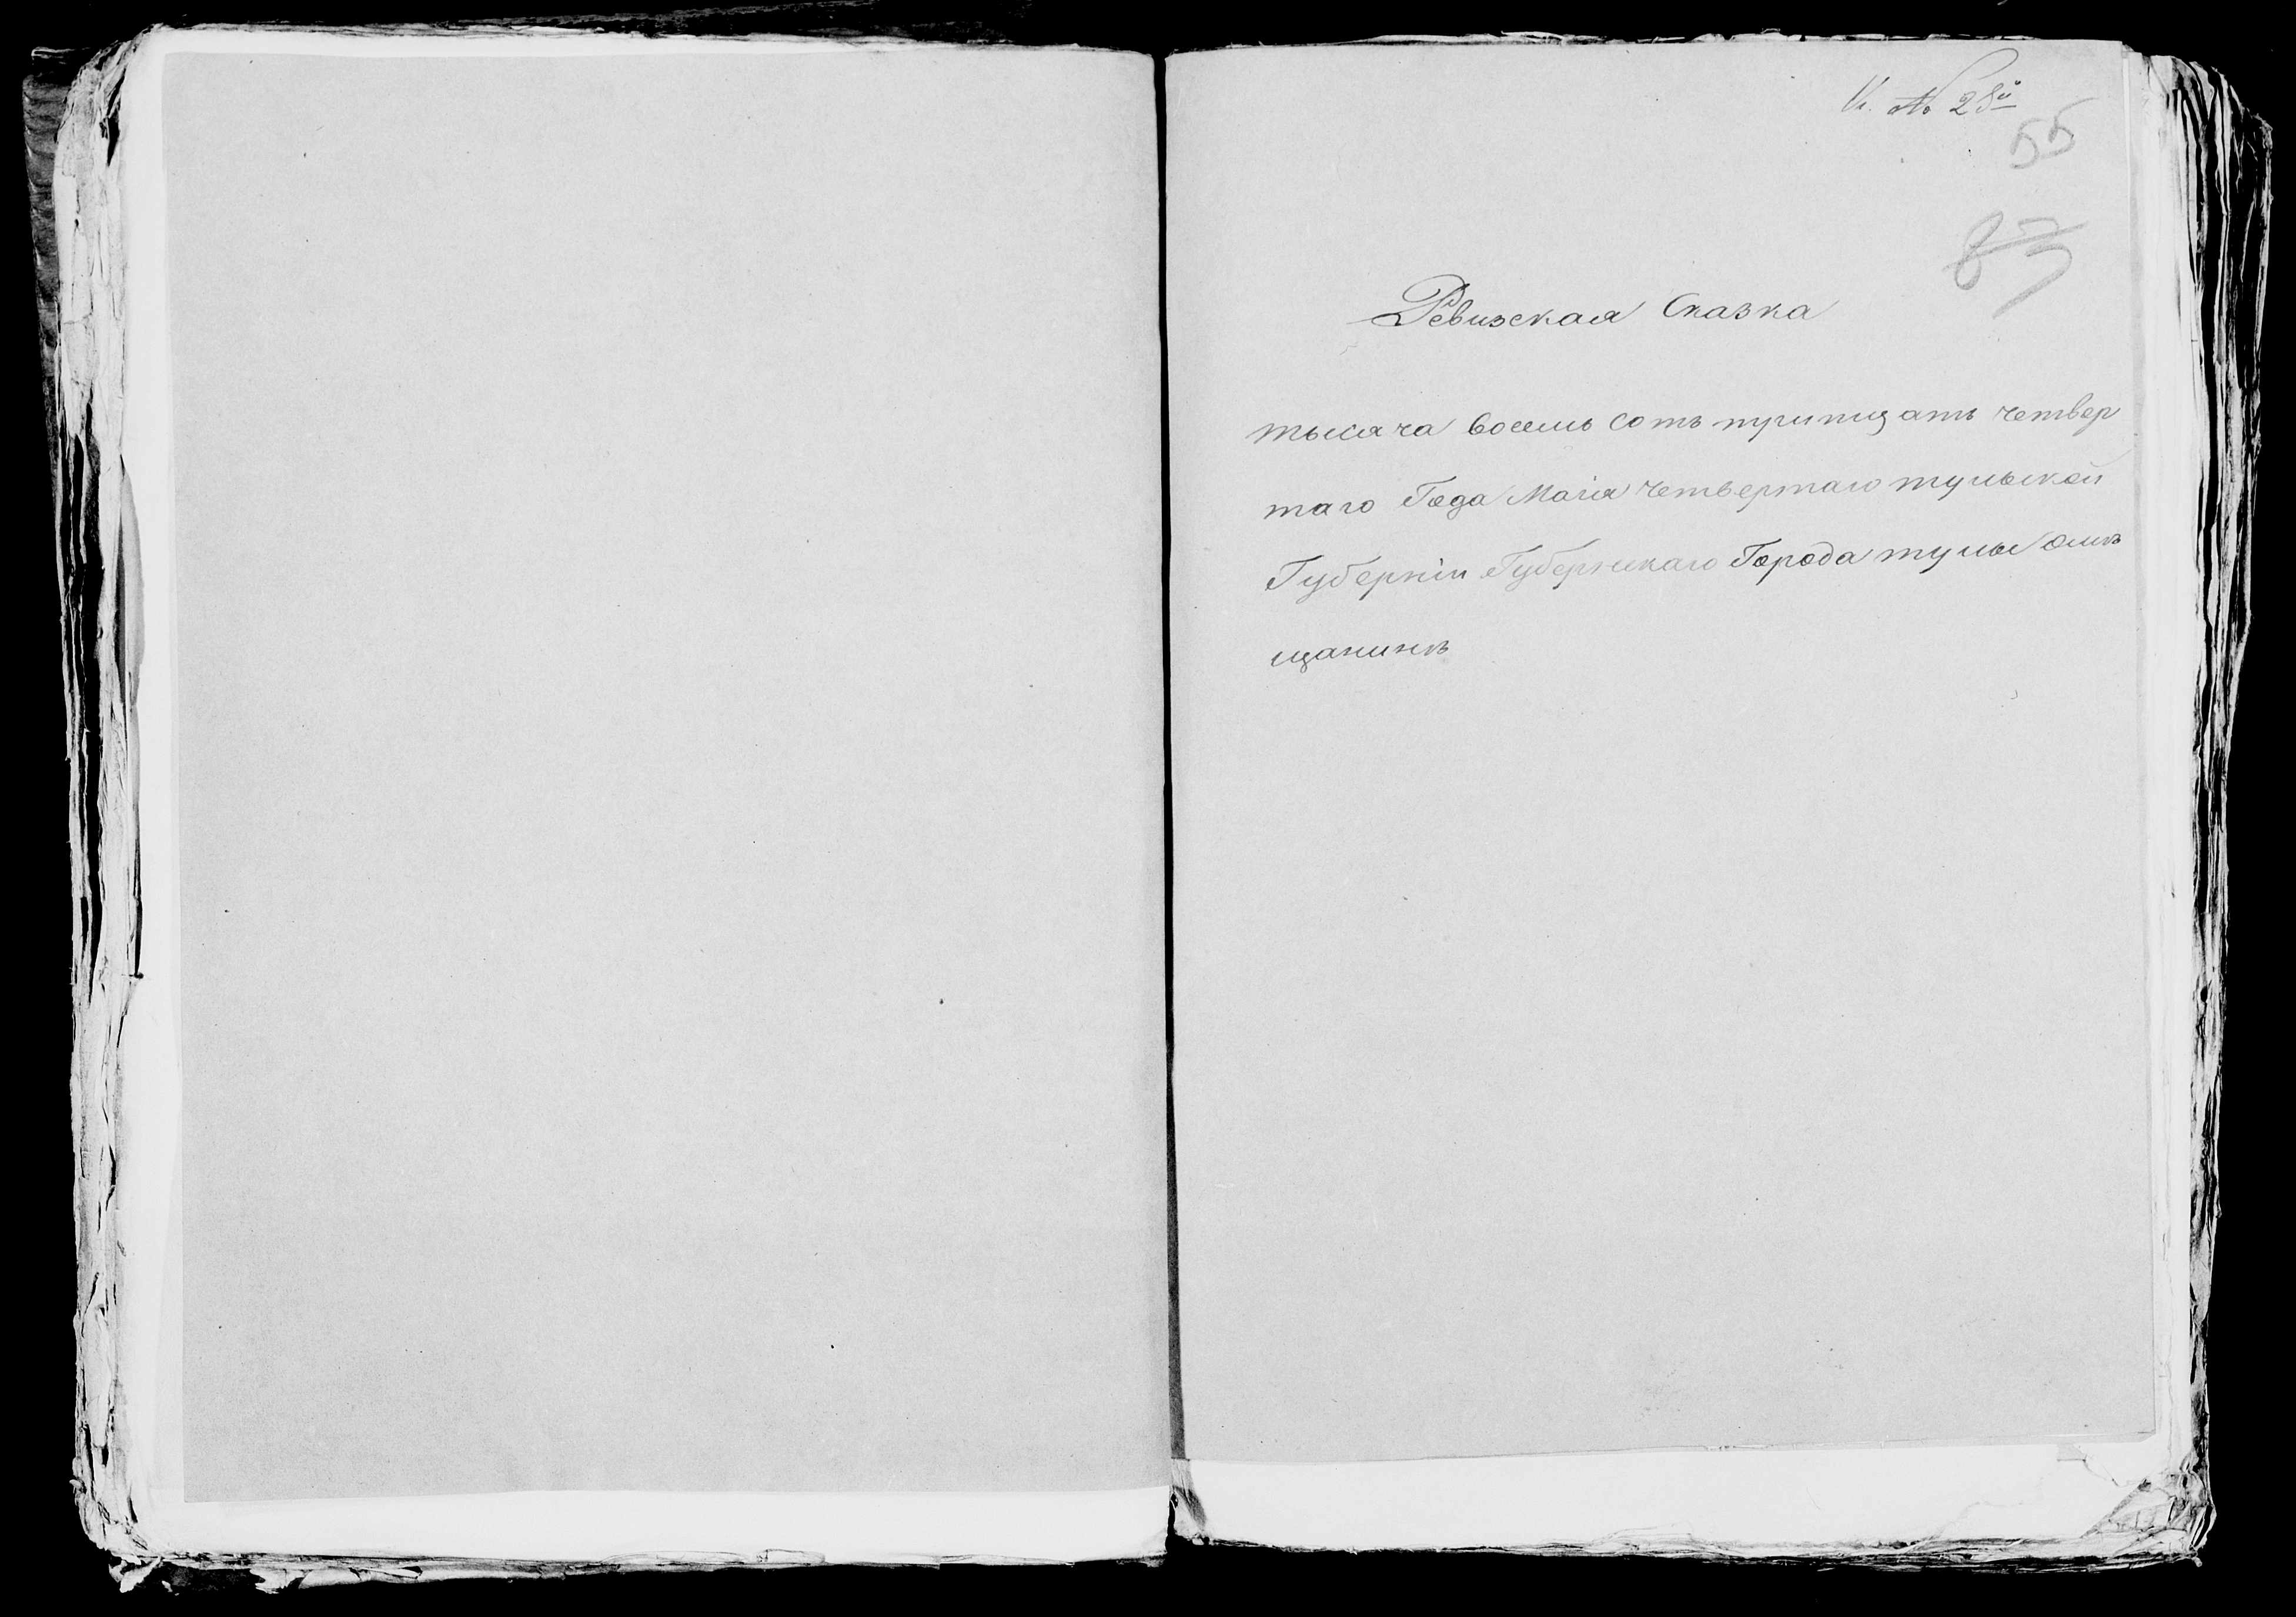 К. № 28й
55
83
Ревизская Сказка
тысяча восемь сотъ тритцать четвер
таго Года Маія четвертаго тульской
Губерніи Губернскаго Города тулы омъ
щанинъ